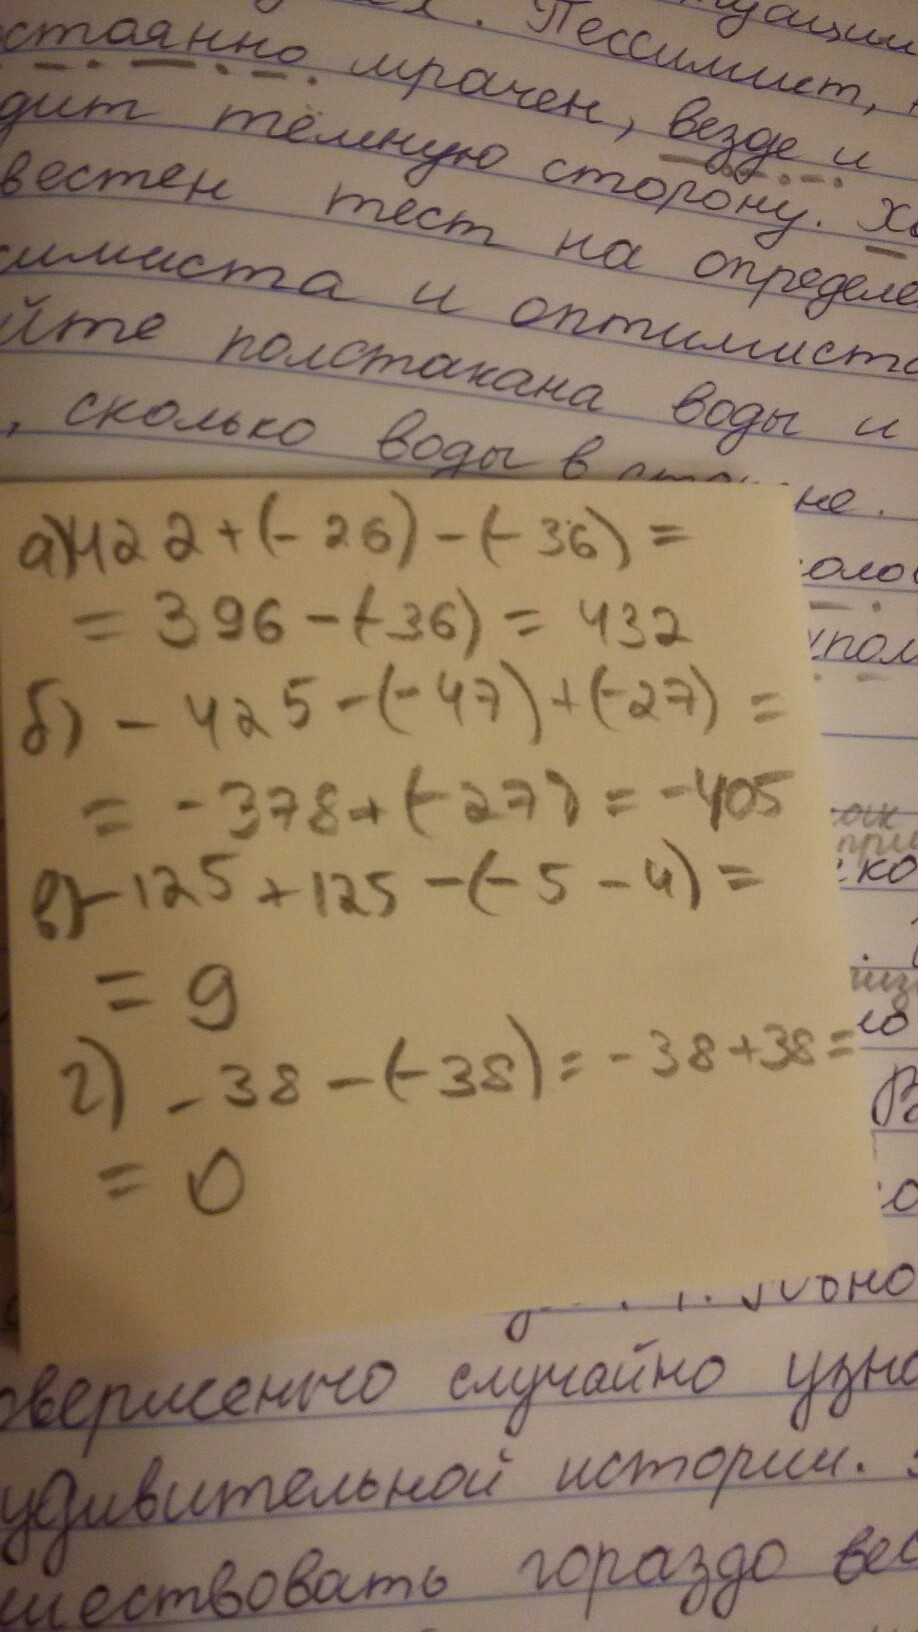 Пессимист,
стоянно мрачен, везде и
дит тёмную сторону.
вестен тест на определе
симиста и оптимиста
йте полстакана воды и
, сколько воды в
не.
а) 422 + (- 26) - (- 36) =
= 396 - (-36) = 432
б) - 425 - (- 47) + (- 27) =
= - 378 + (- 27) = -405
в) - 125 + 125 - (- 5 - 4) =
= 9
г) - 38 - (- 38) = - 38 + 38 =
= 0
овершенно случайно узна
удивительной истории.
шествовать гораздо вес